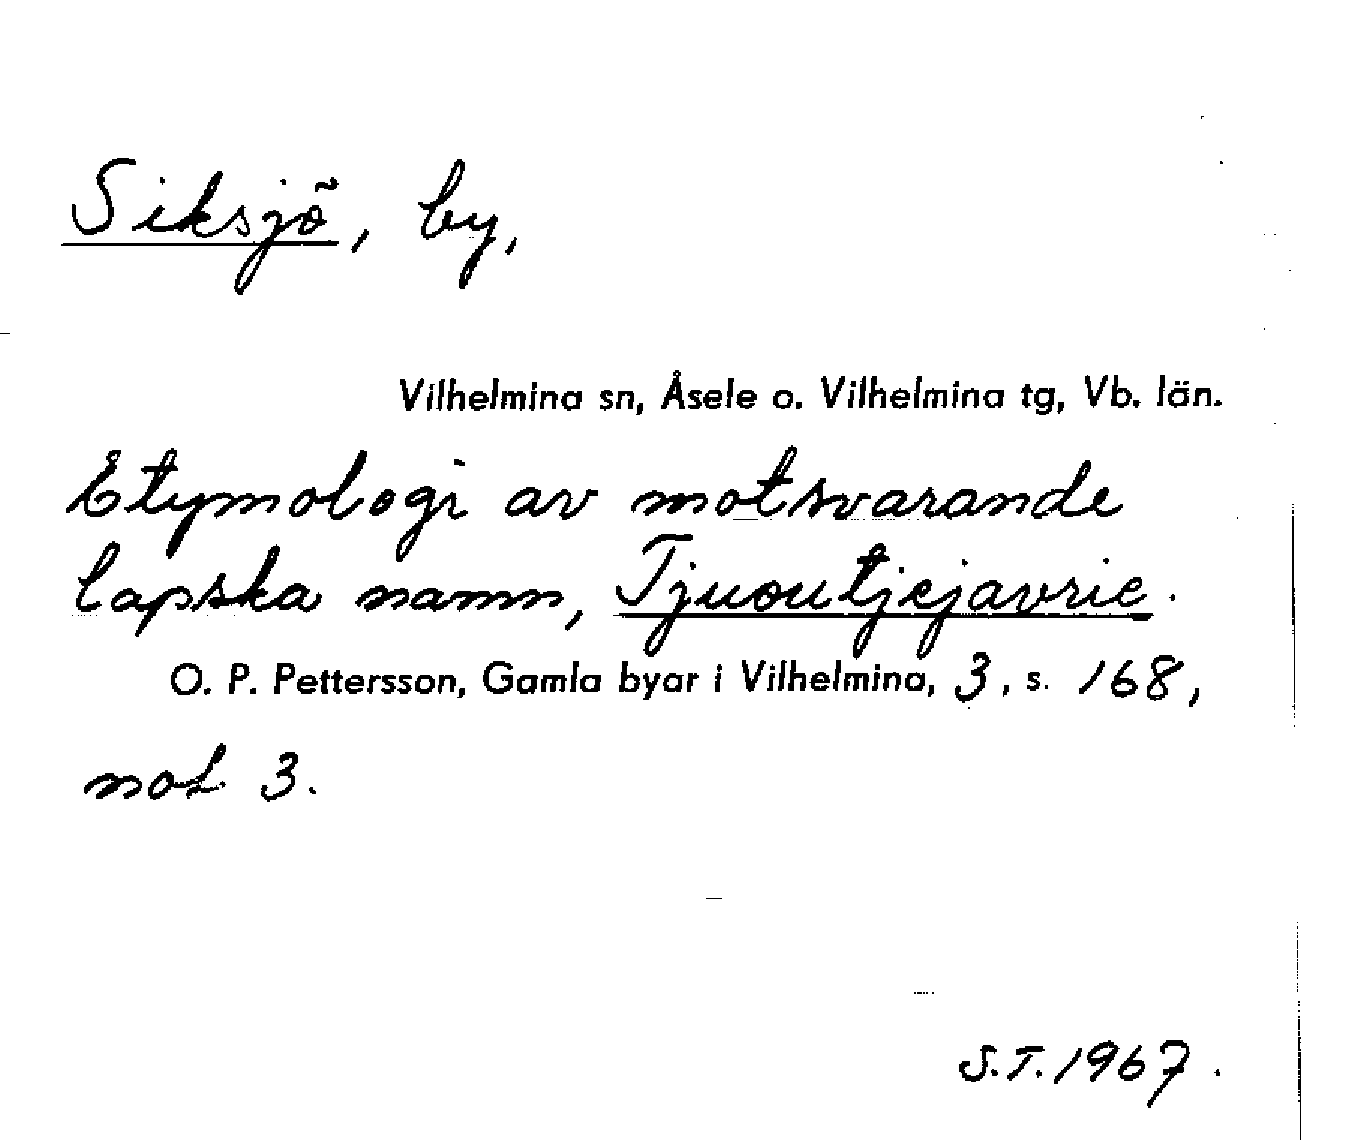 Siksjö, by,
Vilhelmina sn, Åsele o. Vilhelmina tg, Vb. län.
Etymologi av motsvarande
lapska namn, Tjuoutjejavrie.
O. P. Pettersson, Gamla byar i Vilhelmina, 3, s. 168,
not 3.
S.T. 1967.